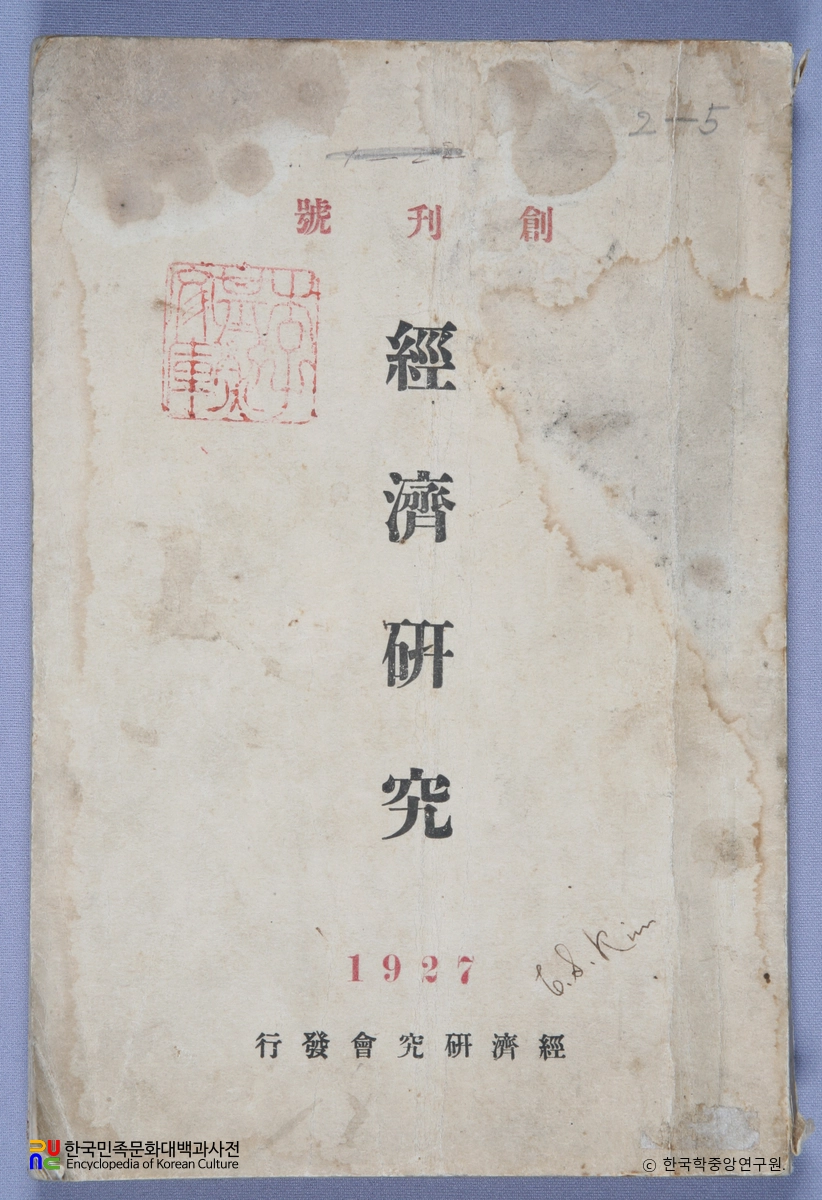 2-5
創刊號
經濟硏究
1927
C.S. Kim
經濟硏究會發行
한국민족문화대백과사전
Encyclopedia of Korean Culture
© 한국학중앙연구원.